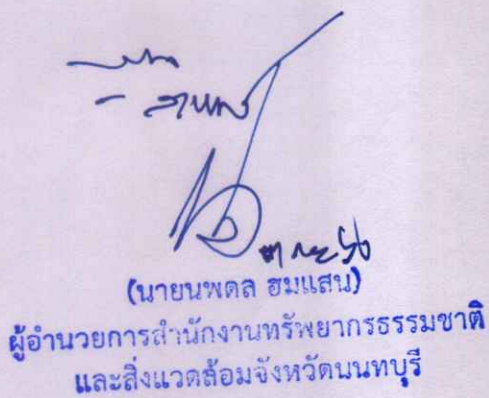 (นายนพดล ฮมแสน)
ผู้อำนวยการสำนักงานทรัพยากรธรรมชาติ
และสิ่งแวดล้อมจังหวัดนนทบุรี